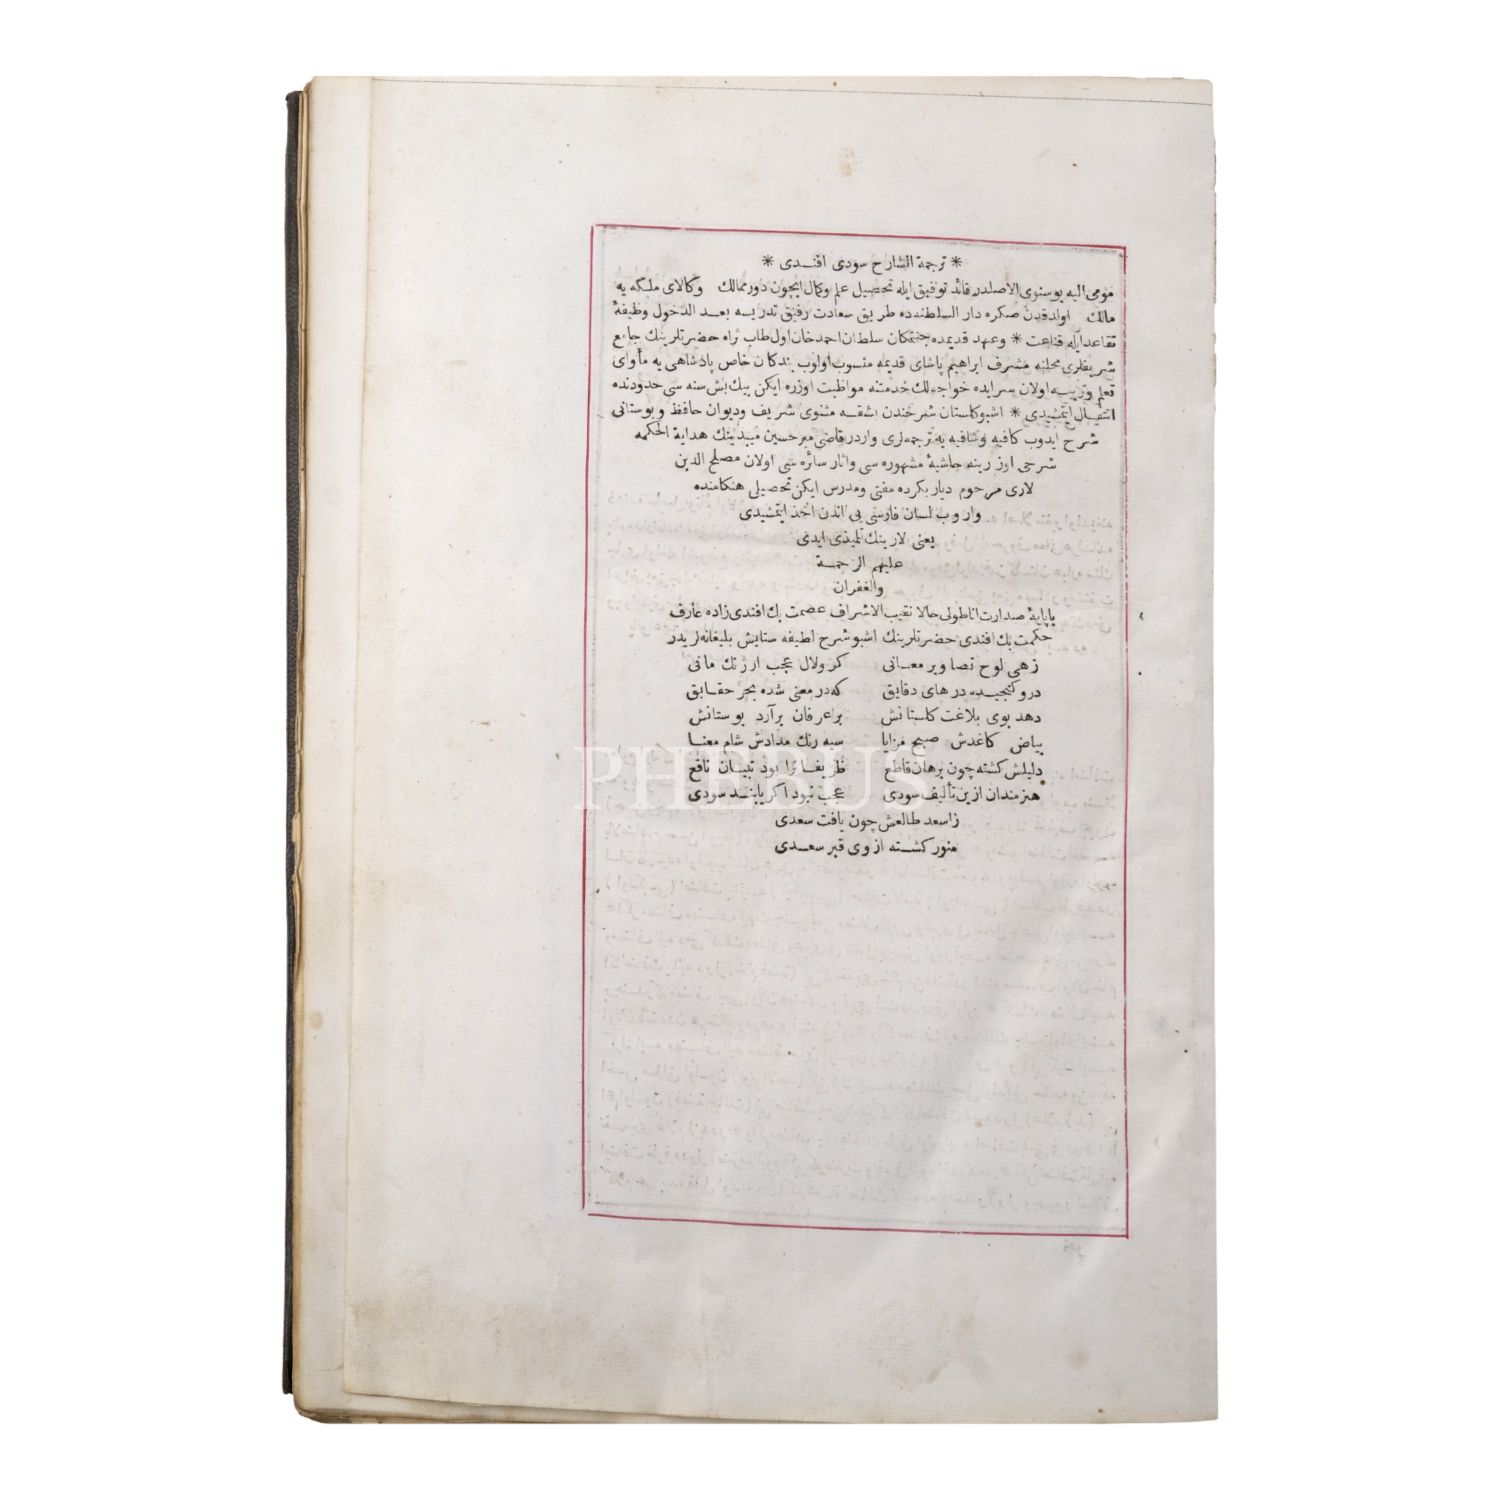 * ترجمة الشارح سودى افندى *
مومى اليه بوسنوى الاصلدر قائد توفيق ايله تحصيل علم وكمال ايچون دور ممالك وكالاى ملكه يه
مالك اولدقدن صكره دار السلطنده طريق سعادت رفيق تدريسه بعد الدخول وظيفۀ
تقاعد ايله قناعت * وعهد قديمده جنتمكان سلطان احمد خان اول طاب ثراه حضرتلرينك جامع
شريفلرى محلنه مشرف ابراهيم پاشاى قديمه منسوب اولوب بندكان خاص پادشاهى يه مأواى
تعلم وتربيه اولان سرايده خواجه لك خدمتنه مواظبت اوزره ايكن بيك بش سنه سى حدودنده
انتقال ايتمشيدى * اشبو كلستان شرحندن اشقه مثنوى شريف وديوان حافظ وبوستانى
شرح ايدوب كافيه وشافيه يه ترجمه لرى واردر قاضى مير حسين ميبدينك هداية الحكمه
شرحى اوزرينه حاشيۀ مشهوره سى واثار سائره سى اولان مصلح الدين
لارى مرحوم ديار بكرده مفتى ومدرس ايكن تحصيلى هنكامنده
واروب لسان فارسى يى اندن اخذ ايتمشيدى
يعنى لارينك تلميذى ايدى
عليهم الرحمة
والغفران
پاپايۀ صدارت اناطولى حالا نقيب الاشراف عصمت بك افندى زاده عارف
حكمت بك افندى حضرتلرينك اشبو شرح لطيفه ستايش بليغانه لريدر
زهى لوح تصاوير معانى كزو لال عجب ارژنك مانى
درو كنجيده درهاى دقايق كه در معنى شده بحر حقايق
دهد بوى بلاغت كلستانش بر عرفان برآرد بوستانش
بياض كاغدش صبح مزايا سيه رنك مدادش شام معنا
دليلش كشته چون برهان قاطع ظريفانرا بود تبيان نافع
هنرمندان ازين تأليف سودى عجب نبود اكر يابند سودى
زاسعد طالعش چون يافت سعدى
منور كشته از وى قبر سعدى
PHEBUS